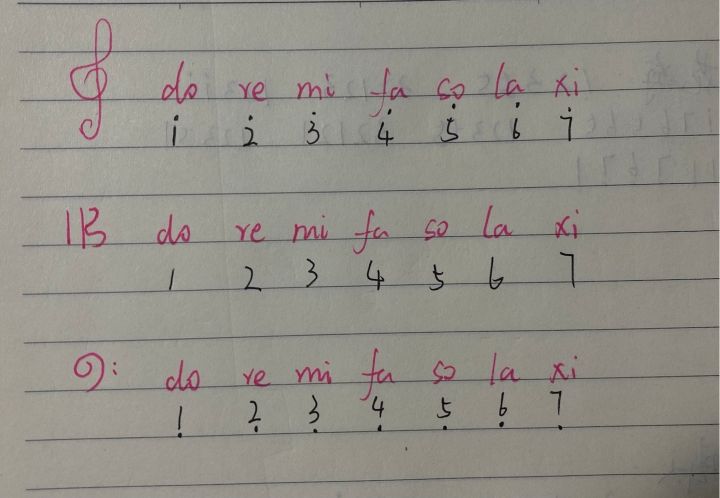 do re mi fa so la xi
1̇ 2̇ 3̇ 4̇ 5̇ 6̇ 7̇
do re mi fa so la xi
1 2 3 4 5 6 7
do re mi fa so la xi
1̣ 2̣ 3̣ 4̣ 5̣ 6̣ 7̣